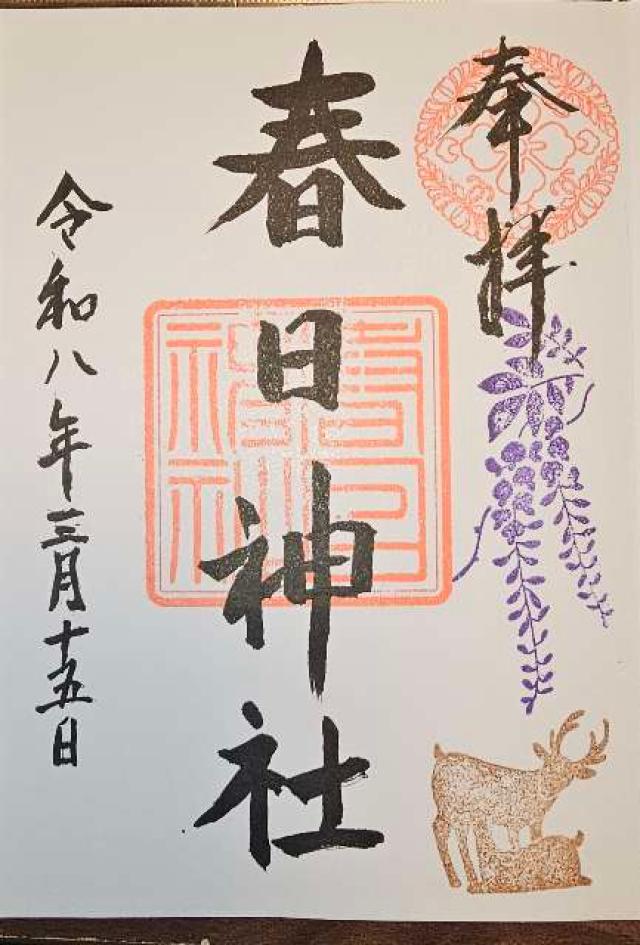 奉拝
春日神社
春日神社
令和八年三月十五日